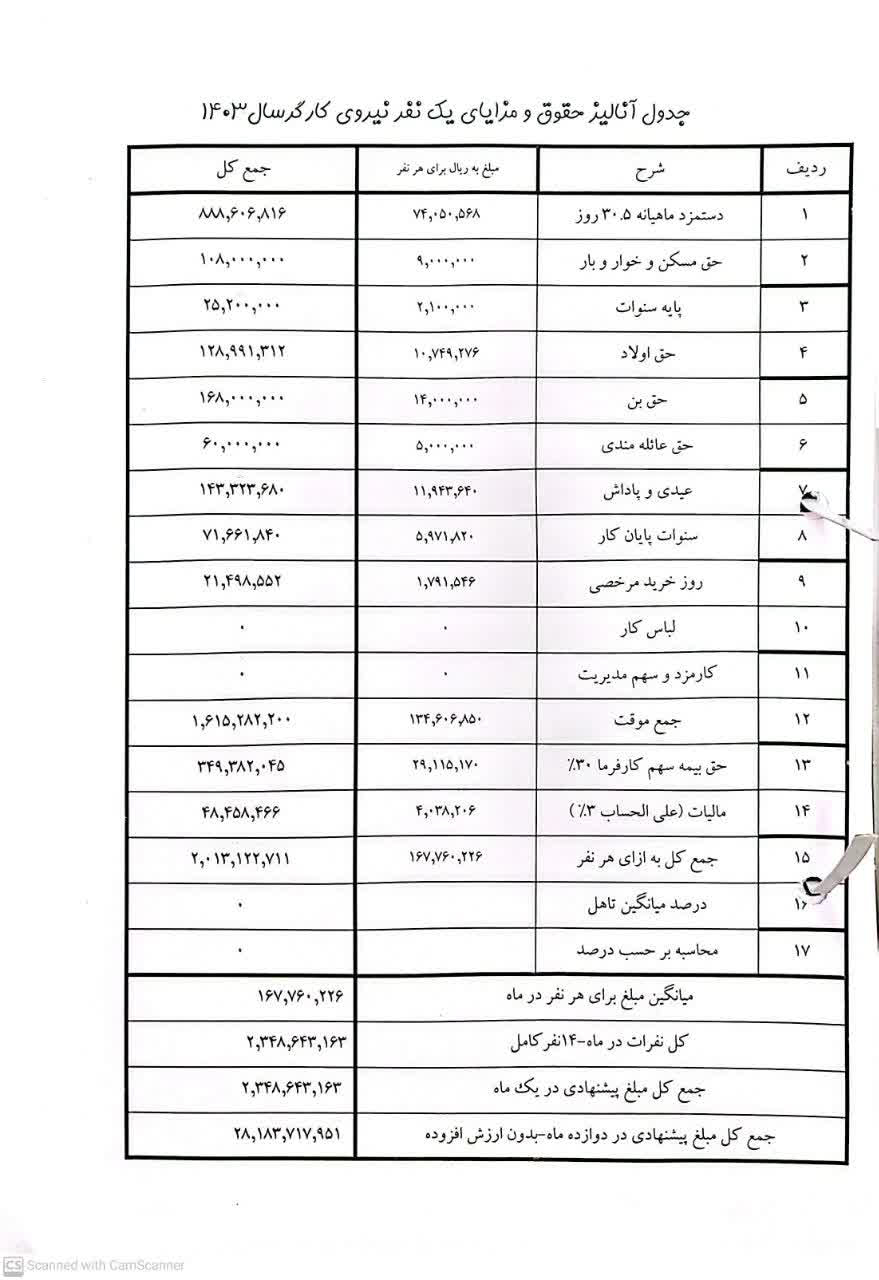 جدول آنالیز حقوق و مزایای یک نفر نیروی کارگر سال ۱۴۰۳
ردیف شرح مبلغ به ریال برای هر نفر جمع کل
۱ دستمزد ماهیانه ۳۰.۵ روز ۷۴,۰۵۰,۵۶۸ ۸۸۸,۶۰۶,۸۱۶
۲ حق مسکن و خوار و بار ۹,۰۰۰,۰۰۰ ۱۰۸,۰۰۰,۰۰۰
۳ پایه سنوات ۲,۱۰۰,۰۰۰ ۲۵,۲۰۰,۰۰۰
۴ حق اولاد ۱۰,۷۴۹,۲۷۶ ۱۲۸,۹۹۱,۳۱۲
۵ حق بن ۱۴,۰۰۰,۰۰۰ ۱۶۸,۰۰۰,۰۰۰
۶ حق عائله مندی ۵,۰۰۰,۰۰۰ ۶۰,۰۰۰,۰۰۰
۷ عیدی و پاداش ۱۱,۹۴۳,۶۴۰ ۱۴۳,۳۲۳,۶۸۰
۸ سنوات پایان کار ۵,۹۷۱,۸۲۰ ۷۱,۶۶۱,۸۴۰
۹ روز خرید مرخصی ۱,۷۹۱,۵۴۶ ۲۱,۴۹۸,۵۵۲
۱۰ لباس کار ۰ ۰
۱۱ کارمزد و سهم مدیریت ۰ ۰
۱۲ جمع موقت ۱۳۴,۶۰۶,۸۵۰ ۱,۶۱۵,۲۸۲,۲۰۰
۱۳ حق بیمه سهم کارفرما ۳۰٪ ۲۹,۱۱۵,۱۷۰ ۳۴۹,۳۸۲,۰۴۵
۱۴ مالیات (علی الحساب ۳٪) ۴,۰۳۸,۲۰۶ ۴۸,۴۵۸,۴۶۶
۱۵ جمع کل به ازای هر نفر ۱۶۷,۷۶۰,۲۲۶ ۲,۰۱۳,۱۲۲,۷۱۱
۱۶ درصد میانگین تاهل ۰
۱۷ محاسبه بر حسب درصد ۰
میانگین مبلغ برای هر نفر در ماه ۱۶۷,۷۶۰,۲۲۶
کل نفرات در ماه-۱۴نفرکامل ۲,۳۴۸,۶۴۳,۱۶۳
جمع کل مبلغ پیشنهادی در یک ماه ۲,۳۴۸,۶۴۳,۱۶۳
جمع کل مبلغ پیشنهادی در دوازده ماه-بدون ارزش افزوده ۲۸,۱۸۳,۷۱۷,۹۵۱
CS Scanned with CamScanner